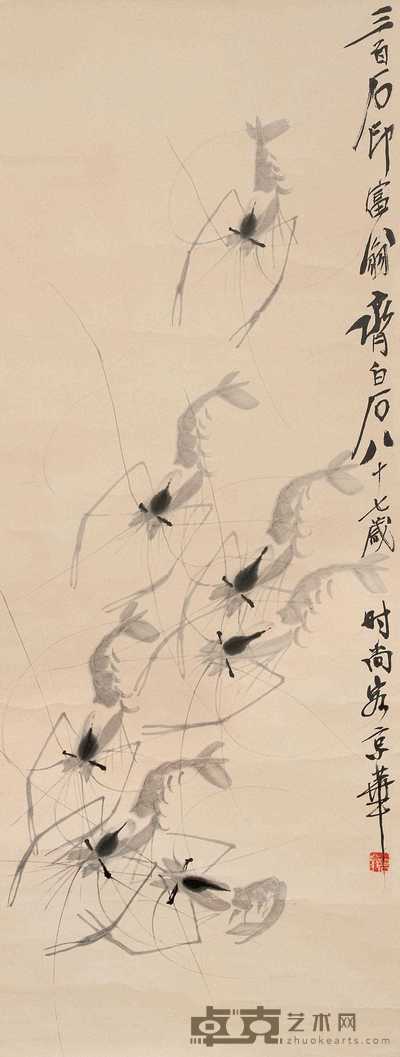 三百石印富翁齊白石八十七歲时尚客京華
卓克艺术网
zhuokearts.com